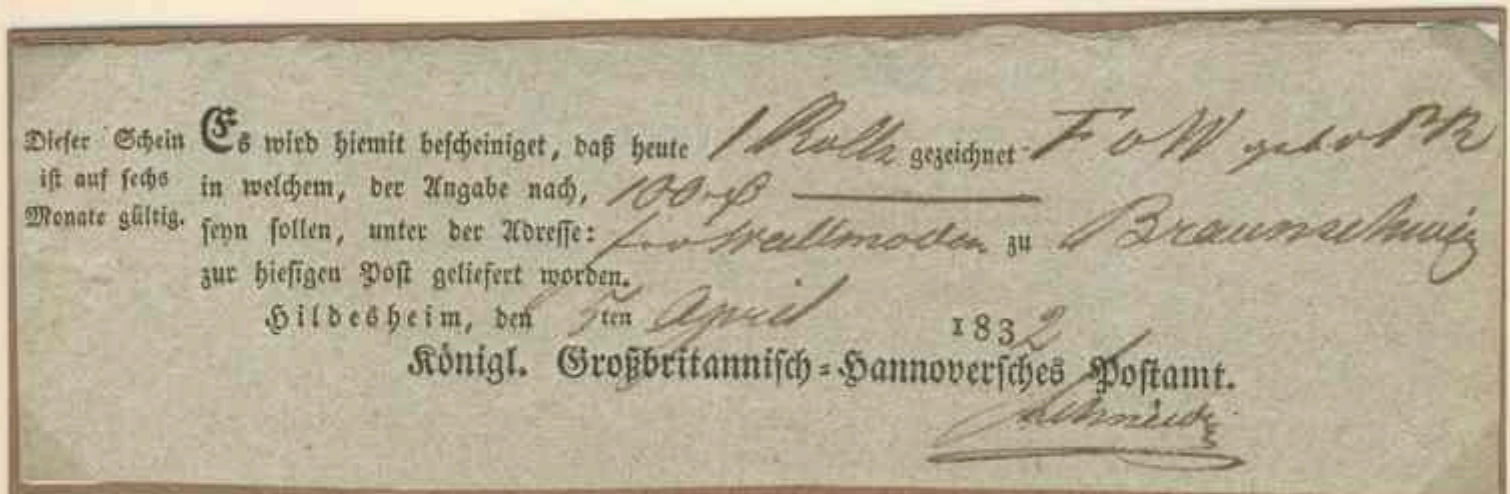 Dieser Schein
ist auf sechs
Monate gültig.
Es wird hiemit bescheiniget, daß heute 1 Rolle gezeichnet F v W
in welchem, der Angabe nach, 100
seyn sollen, unter der Adresse: Wallmoden zu Braunschweig
zur hiesigen Post geliefert worden.
Hildesheim, den ten April 1832
Königl. Großbritannisch-Hannoversches Postamt.